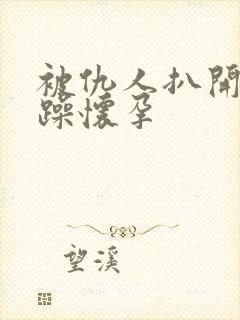 被仇人扒開
躁懷孕
望溪